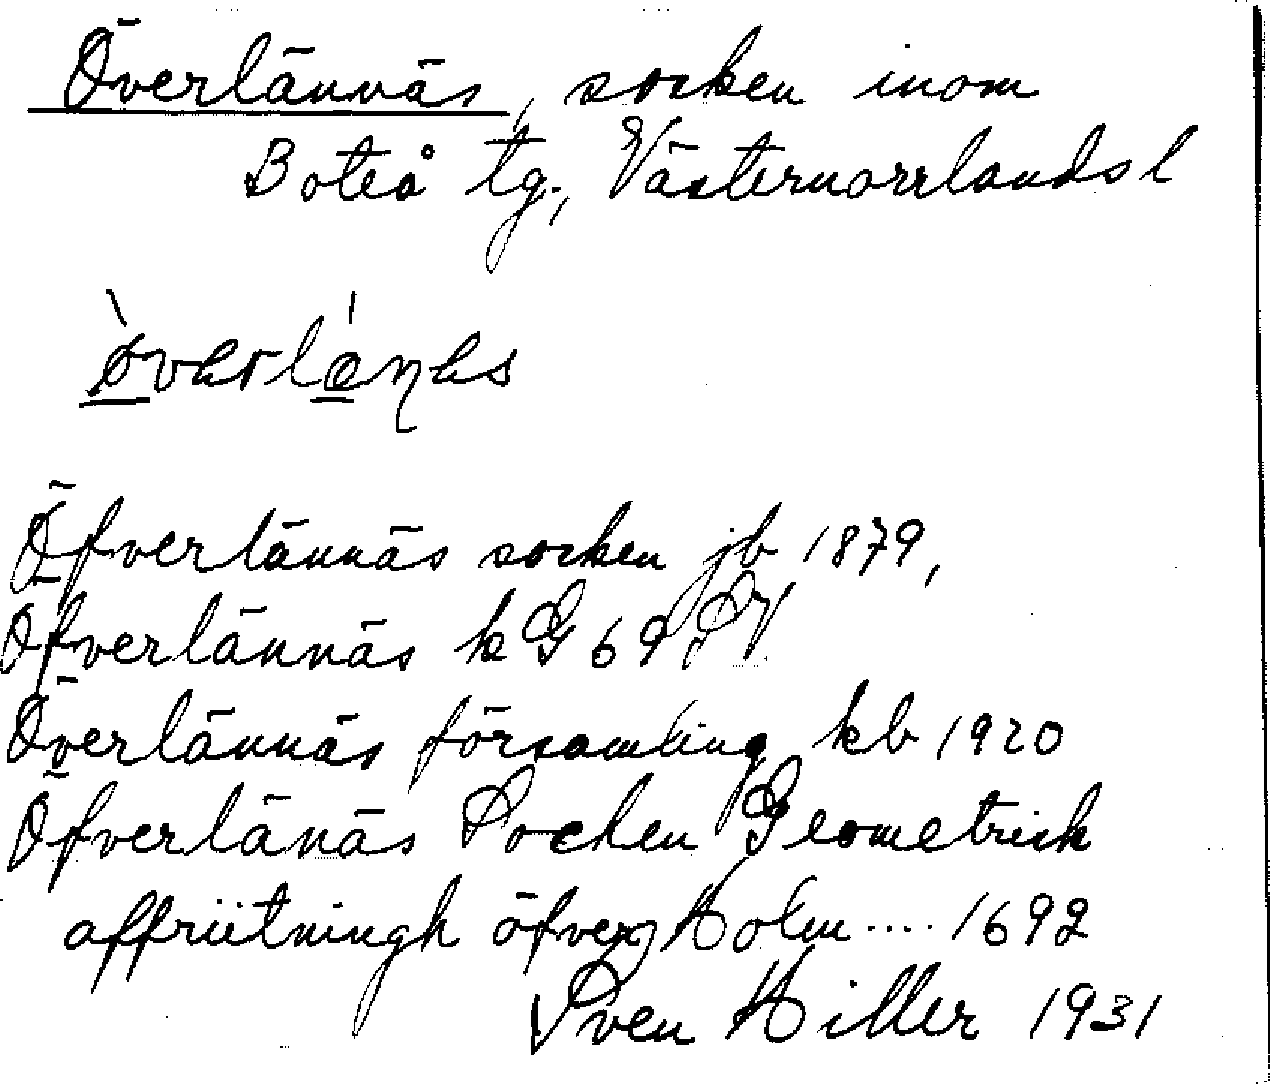 Överlännäs, socken inom
Boteå tg., Västernorrlands l
Öfverlännäs socken jb 1879,
Öfverlännäs k G 69 SV
Överlännäs församling kb 1920
Öfverlänäs Socken Geometrisk
affriitningh öfver Holm .... 1692
Sven Hiller 1931